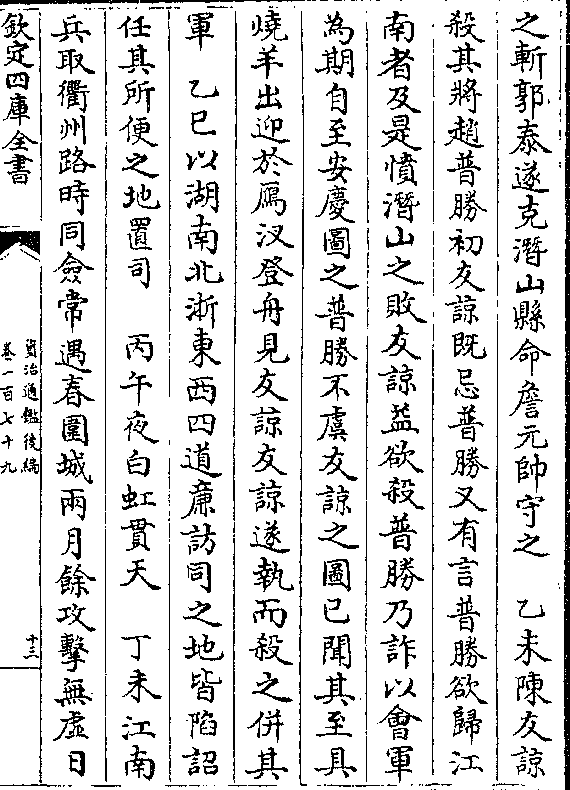 之斬郭泰遂克潛山縣命詹元帥守之　乙未陳友諒
殺其將趙普勝初友諒既忌普勝又有言普勝欲歸江
南者及是憤潛山之敗友諒益欲殺普勝乃詐以會軍
為期自至安慶圖之普勝不虞友諒之圖已聞其至具
燒羊出迎於鴈汊登舟見友諒友諒遂執而殺之併其
軍　乙巳以湖南北浙東西四道廉訪司之地皆陷詔
任其所便之地置司　丙午夜白虹貫天　丁未江南
兵取衢州路時同僉常遇春圍城兩月餘攻擊無虛日
欽定四庫全書
資治通鑑後編
卷一百七十九
十三